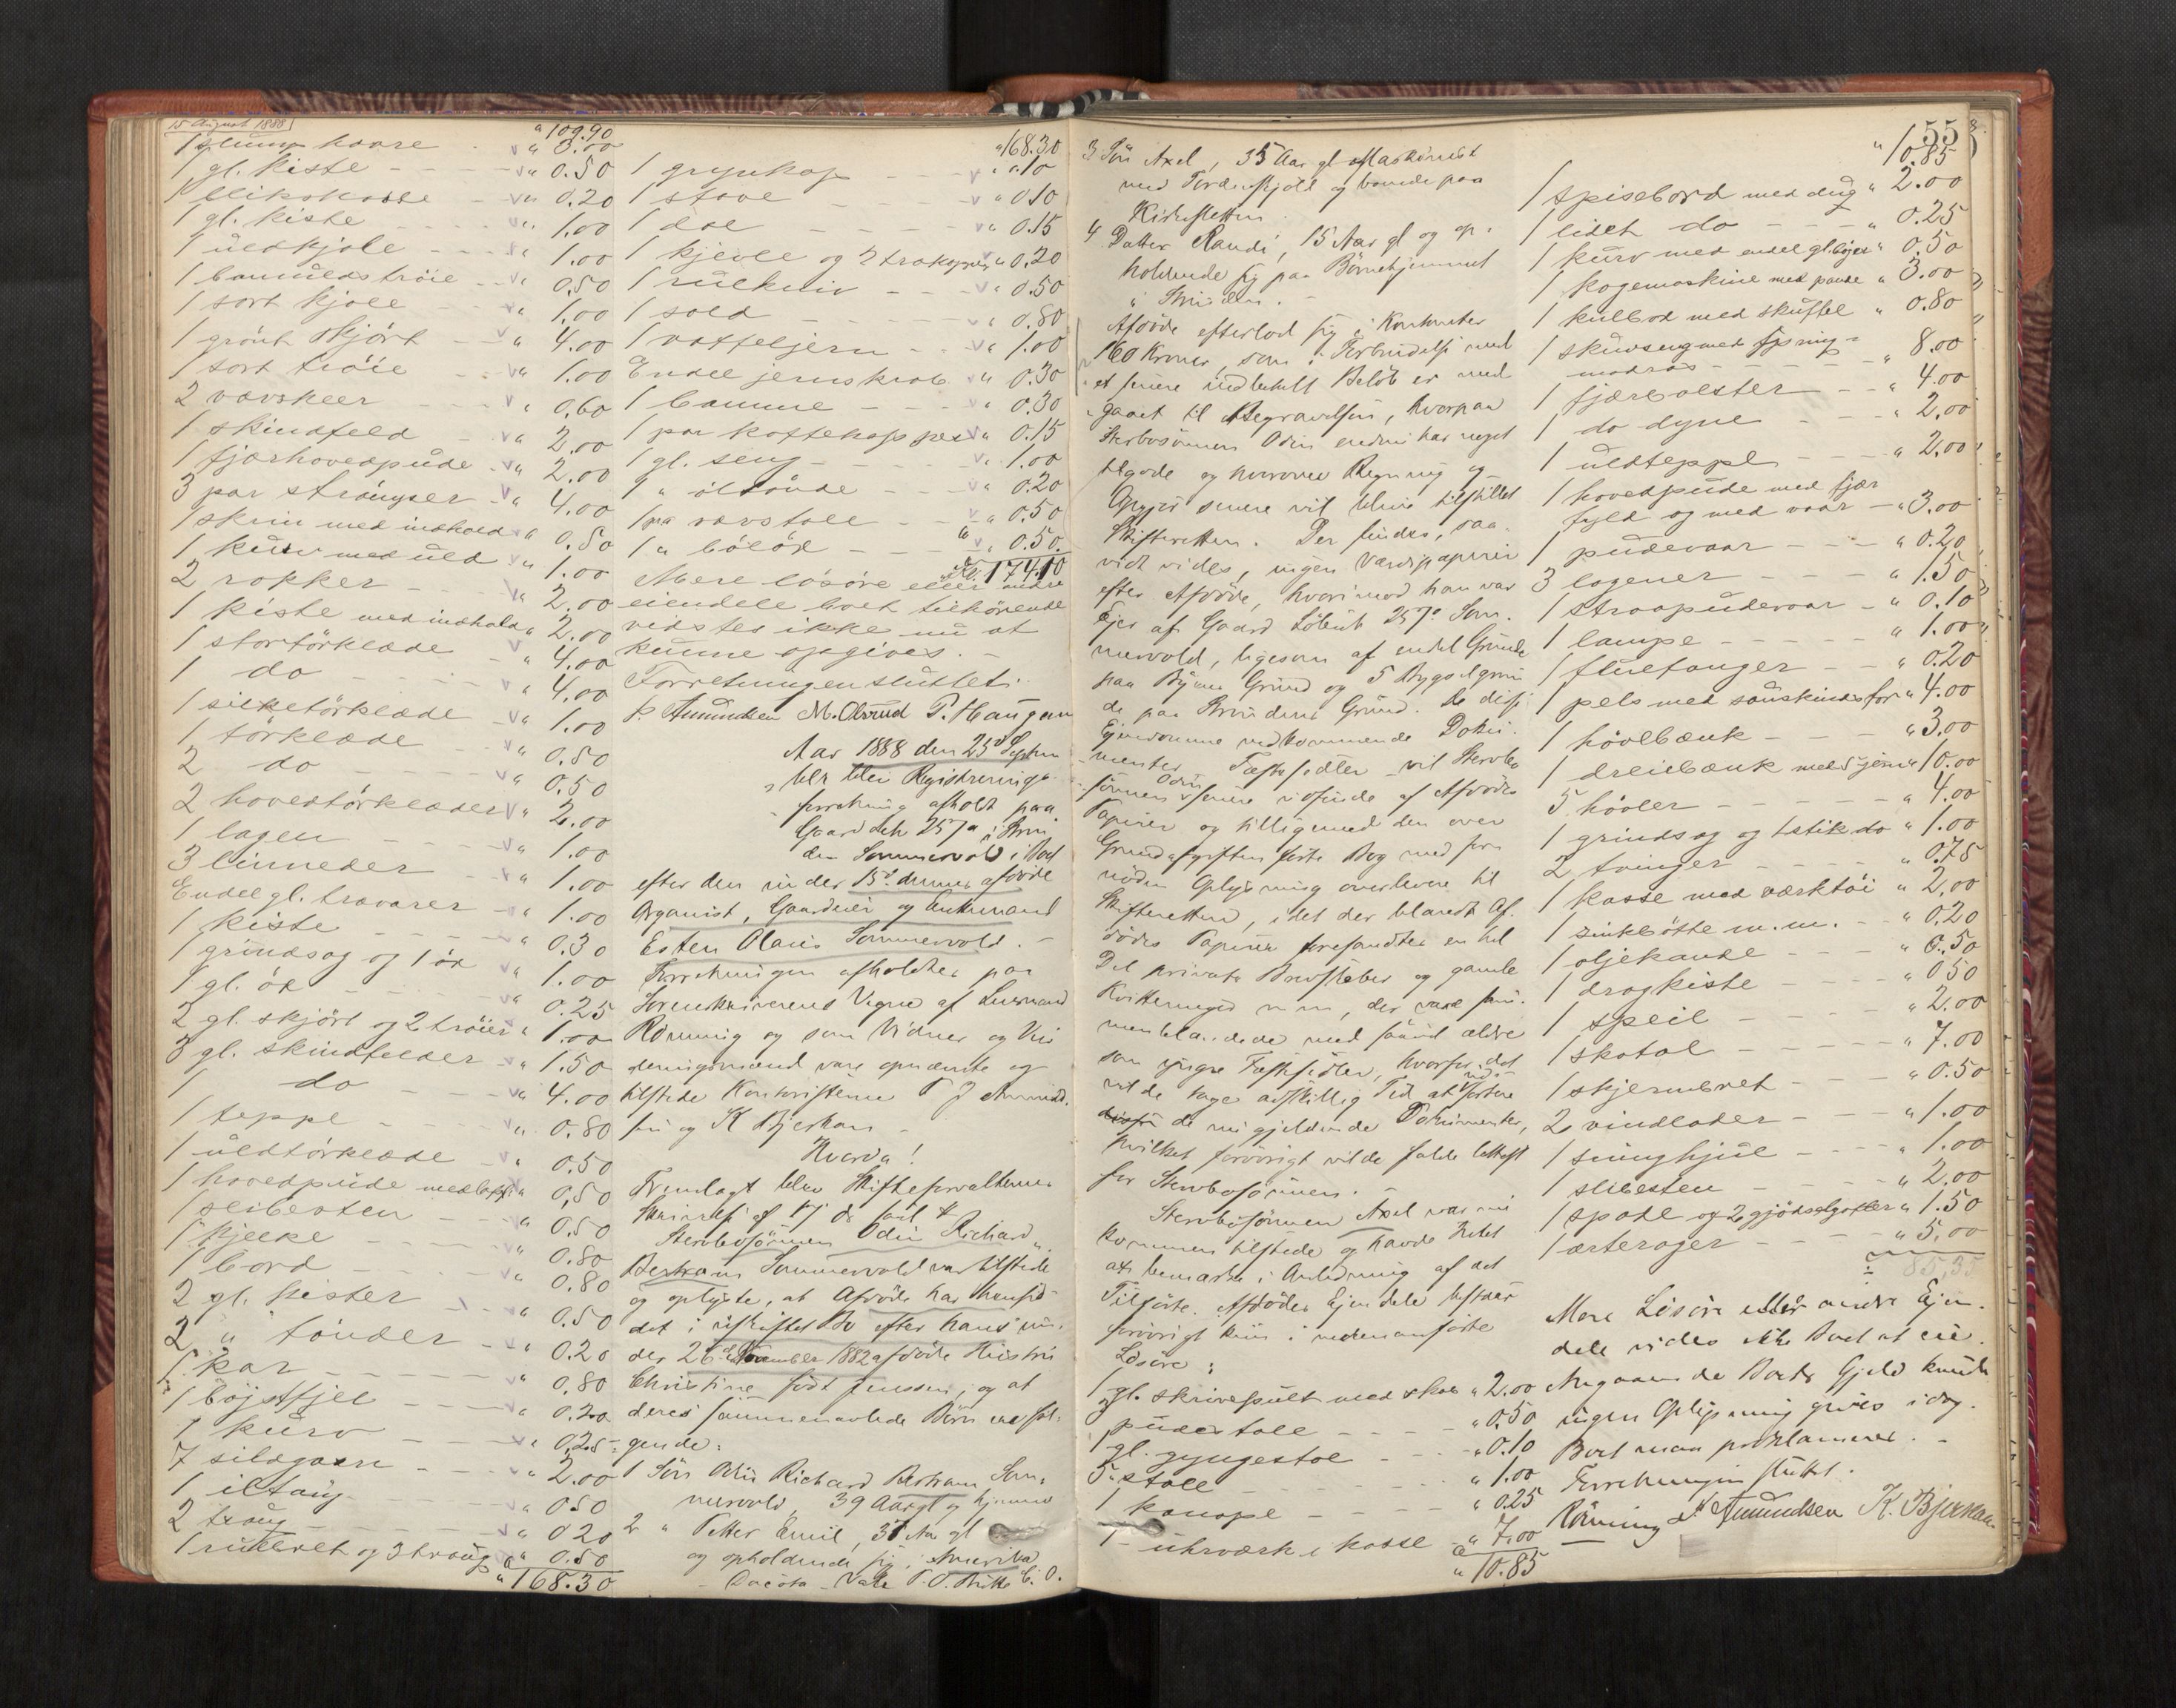 15 August 1888
" 109.90
1 slump haare " 3.00
1 gl. kiste - - - " 0.50
1 blikskaase - " 0.20
1 gl. kiste - - - " 1.00
1 uldkjole - - - " 1.00
1 bomuldströie - - " 0.50
1 sort kjole - - " 1.00
1 grönt skjört - - " 4.00
1 sort tröie - - " 1.00
2 vævskeer - - - " 0.60
1 skindfeld - " 2.00
1 fjærhovedpude - " 2.00
3 par strömper - " 4.00
1 skrin med indhold " 0.50
1 kurv med uld " 1.00
2 rokker - - - " 2.00
1 kiste med indhold " 2.00
1 stortörklæde " 4.00
1 do - - - " 4.00
1 silketörklæde - " 1.00
1 törklæde - - " 0.50
2 do - - - " 0.50
2 hovedtörklæder " 2.00
1 lagen - - - " 1.00
3 linneder - - " 1.00
Endel gl. trævarer - " 1.00
1 kiste - - - " 0.30
1 grindsag og 1 öx " 1.00
1 gl. öx - - - " 0.25
2 gl. skjört og 2 tröier " 1.00
3 gl. skindfelder - " 1.50
1 do - - - " 4.00
1 teppe - - - " 0.80
1 uldtörklæde - " 0.50
1 hovedpude med " 0.50
1 slibesten - - " 0.50
1 kjelke - - - " 0.80
1 bord - - - " 0.80
2 gl. kister - " 0.50
2 " tönder - - " 0.20
1 kar - - - " 0.80
1 böjstfjel - - " 0.20
1 kurv - - - " 0.25
7 sildgarn - - - " 2.00
1 iltang - - - " 0.50
2 traug - - - " 0.20
1 rulbret og 3 traug " 0.50
" 168.30
" 168.30
1 grynkop - - - " 10
1 stove - - - " 0.10
1 dol - - - " 0.15
1 kjevle og 2 " 0.20
1 rulkniv - - - " 0.50
1 sold - - - " 0.80
1 vaffeljern - - " 1.00
Endel jernskrab " 0.30
1 bomme - - - " 0.30
1 par kaffekopper " 0.15
1 gl. seng - - - " 1.00
1 " öltönde - - " 0.20
1 vævstoll - - " 0.50
1 " bölöx - - - " 0.50.
Kr. 174.10
Mere lösöre eller andre
eiendele boet tilhörende
vidstes ikke nu at
kunne opgives. -
Forretningen sluttet.
P. Amundsen M. Olsrud P. Haugen
Aar 1888 den 25d Septem
ber blev Registrerings-
forretning afholdt paa
Gaard Löb 257a i Strin
den Sommervold i Boet
efter den under 15d dennes afdöde
Organist, Gaardeier og Enkemand
Esten Olaus Sommervold. -
Forretningen afholdtes paa
Sorenskriverens Vegne af Lensmand
Rönning og som Vidner og Vur
deringsmænd vare opnævnte og
tilstede Kontoristerne P J Amund.
sen og K Bjerkan -
Hvorda!
Fremlagt blev Skifteforvalterens
Skrivelse af 17 ds
Sterbosönnen Odin Richard
Bertram Sommervold var tilstede
og oplyste, at Afdöde har hensid-
det i uskiftet Bo efter hans un-
der 26d November 1882 afdöde Hustru
Christine födt Jenssen, og at
deres sammenavlede Börn ere föl-
gende:
1 Sön Odin Richard Bertram Som-
mervold, 39 Aar gl og hjemme
2 " Petter Emil, 37 Aar gl
og opholdende sig i Amerika
- Dacota - P. O. C. O.
155
3 Sön Axel, 35 Aar gl Maskinist
med Tordenskjold og boende paa
Kidnsletten.
4 Datter Randi, 15 Aar gl og op-
holdende sig paa Börnehjemmet
i Strinden. -
Afdöde efterlod sig i Kontanter
160 Kroner, som i Forbindelse med
et senere indbetalt Belöb er med
gaaet til Begravelsen, hvorpaa
Sterbosönnen Odin endnu har noget
tilgode og hvorover Regning og
Opgjör senere vil blive tilstillet
Skifteretten. Der findes, saa-
vidt vides, ingen Værdipapirer
efter Afdöde, hvorimod han var
Ejer af Gaard Löbeno 257a Som-
mervold, ligesom af endel Grunde
paa Byens Grund og 5 Bygselgrun
de paa Strindens Grund. De disse
Ejendomme vedkommende Doku-
menter, Fæstesedler vil Sterbo
sönnen Odin senere udfinde af Afdödes
Papirer og tilligemed den over
Grundafgiften förte Bog med for
nöden Oplysning overlevere til
Skifteretten, idet der blandt Af-
dödes Papirer forefandtes en hel
Del private Brevskaber og gamle
Kvitteringer m m, der vare sam-
menblandede med saavel ældre
som yngre Fæstesedler, hvorfor det
vilde tage adskillig Tid at udsortere
de nu gjeldende Dokumenter,
hvilket forövrigt vilde falde lettest
for Sterbosönnen. -
Sterbosönnen Axel var nu
kommen tilstede og havde Intet
at bemærke i Anledning af det
Tilförte. Afdödes Ejendele bestaar
forövrigt kun i nedenanförte
Lösöre:
1 gl. skrivepult med skab " 2.00
1 pudestoll - - - " 0.50
1 gl. gyngestol - - " 0.10
5 " stole - - - " 1.00
1 kanape - - - " 0.25
1 uhrværk i kasse " 7.00
" 10.85
" 10.85
1 spisebord med dug " 2.00
1 lidet do - - - " 0.25
1 kurv med endel gl. böger " 0.50
1 kogemaskine med pande " 3.00
1 kulbox med skuffel " 0.80
1 skuvseng med fjering-
madras - - - " 8.00
1 fjærbolster - - " 4.00
1 do dyne - - " 2.00
1 uldteppe - - - " 2.00
1 hovedpude med fjær
fyld og med vaar - " 3.00
1 pudevaar - - - " 0.20
3 lagener - - - " 1.50
1 straapudevaar - " 0.10
1 lampe - - - " 1.00
1 fluefanger - - " 0.20
1 pels med saueskindsfor " 4.00
1 hövlbænk - - - " 3.00
1 dreiebænk med 5 jern " 10.00
5 hövler - - - " 4.00
1 grindsag og 1 stik do " 1.00
2 tvinger - - - " 0.75
1 kasse med værktöi " 2.00
1 zinkbötte m. m. - " 0.20
1 oljekande - - - " 0.50
1 dragkiste - - - " 0.50
1 speil - - - " 2.00
1 skatol - - - " 7.00
1 skjermbret - - - " 0.50
2 vindlader - - - " 1.00
1 svinghjul - - - " 1.00
1 slibesten - - - " 2.00
1 spade og 2 gjödselgafler " 1.50
1 ærterager - - - " 5.00
85,35
Mere Lösöre eller andre Ejen-
dele vides ikke Boet at eie.
Angaaende Boets Gjeld kunde
ingen Oplysning gives idag.
Boet maa proklameres. -
Forretningen sluttet.
Rönning P Amundsen K. Bjerkan